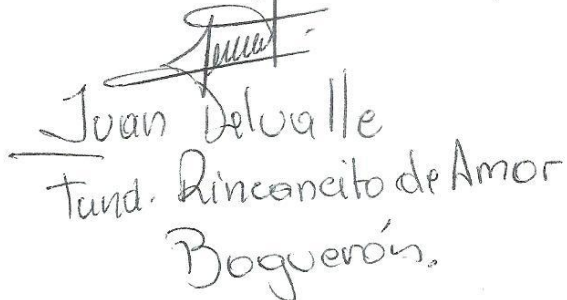 Juan Delvalle
Fund. Rinconcito de Amor
Boquerón.